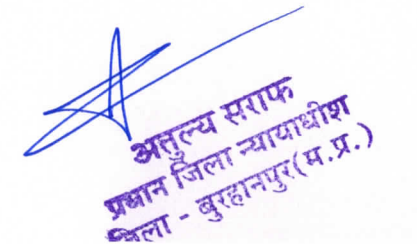 अतुल्य सराफ
प्रधान जिला न्यायाधीश
जिला - बुरहानपुर(म.प्र.)